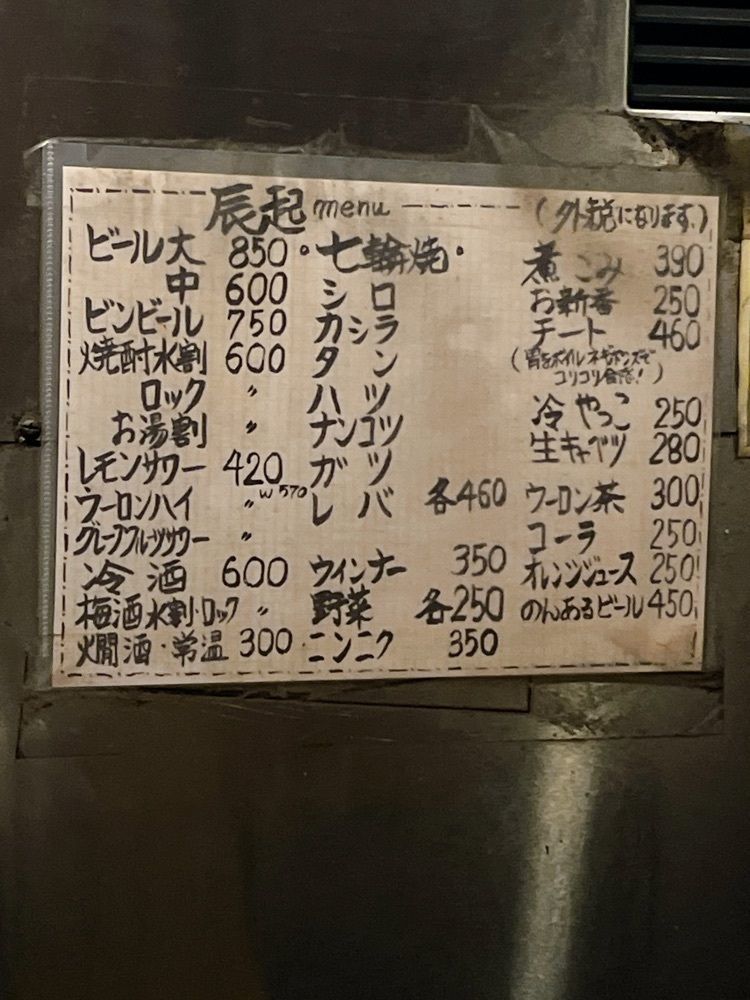 辰起 menu (外税になります。)
ビール大 850
中 600
ビンビール 750
焼酎水割 600
ロック 〃
お湯割 〃
レモンサワー 420
W570
ウーロンハイ 〃
グレープフルーツサワー 〃
冷酒 600
梅酒水割・ロック 〃
燗酒・常温 300
・七輪焼・
シロ
カシラ
タン
ハツ
ナンコツ
ガツ
レバ 各460
ウィンナー 350
野菜 各250
ニンニク 350
煮こみ 390
お新香 250
チート 460
(胃をボイル ネギポンズで
コリコリ食感!)
冷やっこ 250
生キャベツ 280
ウーロン茶 300
コーラ 250
オレンジジュース 250
のんあるビール 450